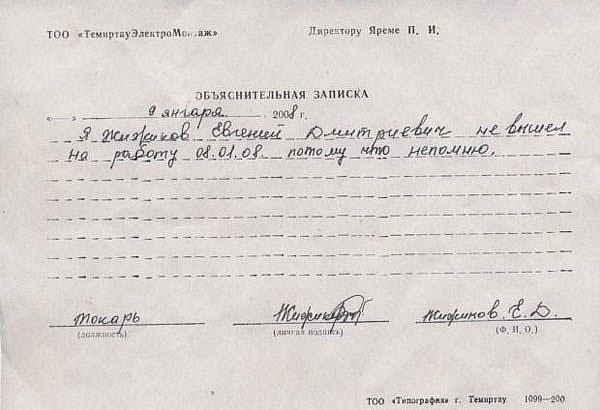 ТОО «ТемиртауЭлектроМонтаж» Директору Яреме П. И.
ОБЪЯСНИТЕЛЬНАЯ ЗАПИСКА
« » 9 января 2008 г.
Я Жижиков Евгений Дмитриевич не вышел
на работу 08.01.08. потому что непомню.
токарь Жижиков Е. Д.
(должность) (личная подпись) (Ф. И. О.)
ТОО «Типография» г. Темиртау 1099—200